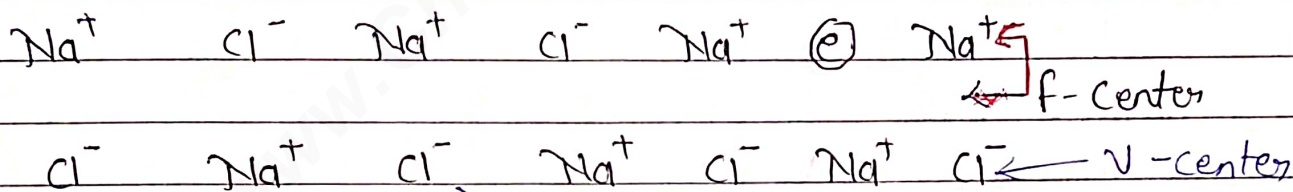 Na⁺ Cl⁻ Na⁺ Cl⁻ Na⁺ e Na⁺
f-center
Cl⁻ Na⁺ Cl⁻ Na⁺ Cl⁻ Na⁺ Cl⁻ V-center